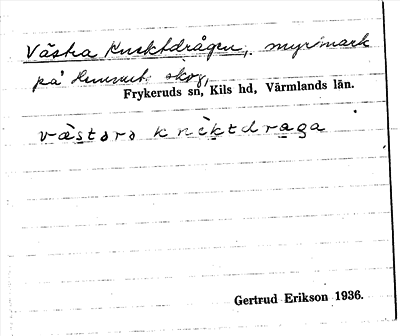 Västra Knektdrågen, myrmark
på Hemmet. skog,
Frykeruds sn, Kils hd, Värmlands län.
væ̀stərə knèktdrɑga
Gertrud Erikson 1936.